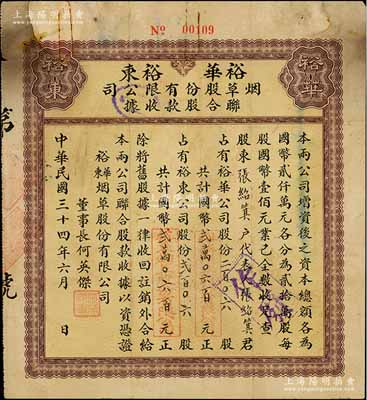 上海陽明拍賣
www.ymauction.com
No 00109
裕華
裕東
裕華
裕東
烟草股份有限公司
聯合股款收據
本兩公司增資後之資本總額各為
國幣貳仟萬元各分為貳拾萬股每
股國幣壹佰元業已全數收足查
股東張紹箕戶代表張紹箕君
占有裕華公司股份二百〇六股
共計國幣貳萬〇六百元正
占有裕東公司股份貳百〇六股
共計國幣貳萬〇六百元正
除將舊股據一律收回註銷外合給
本兩公司聯合股款收據以資憑證
裕華
裕東烟草股份有限公司
董事長何英傑
中華民國三十四年六月 日
第
號